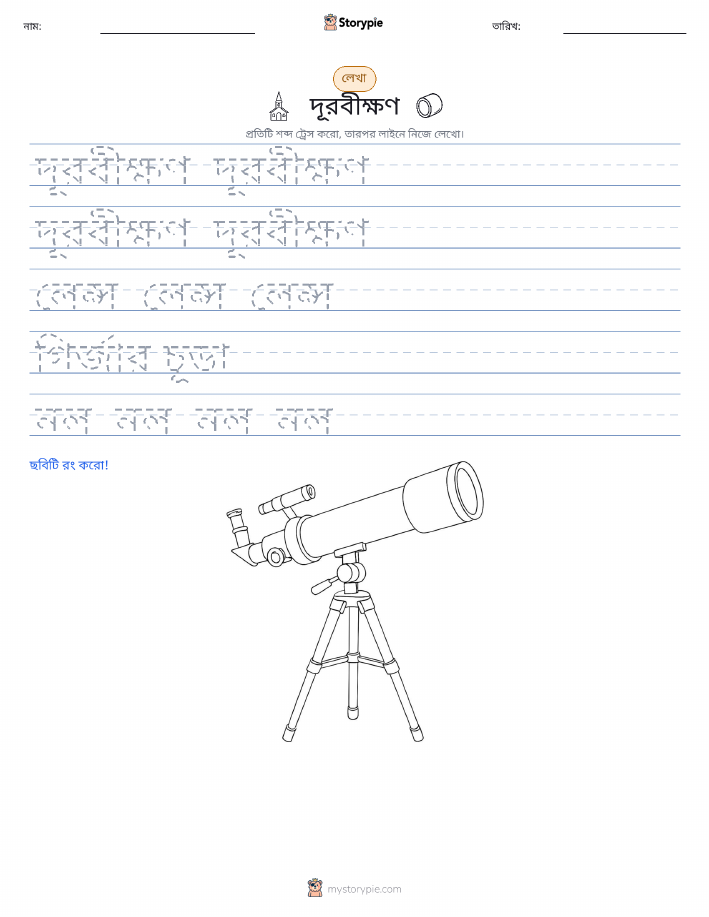 নাম:
Storypie
তারিখ:
লেখা
দূরবীক্ষণ
প্রতিটি শব্দ ট্রেস করো, তারপর লাইনে নিজে লেখো।
দূরবীক্ষণ দূরবীক্ষণ
দূরবীক্ষণ দূরবীক্ষণ
লেন্স লেন্স লেন্স
গির্জার চূড়া
নল নল নল নল
ছবিটি রং করো!
mystorypie.com